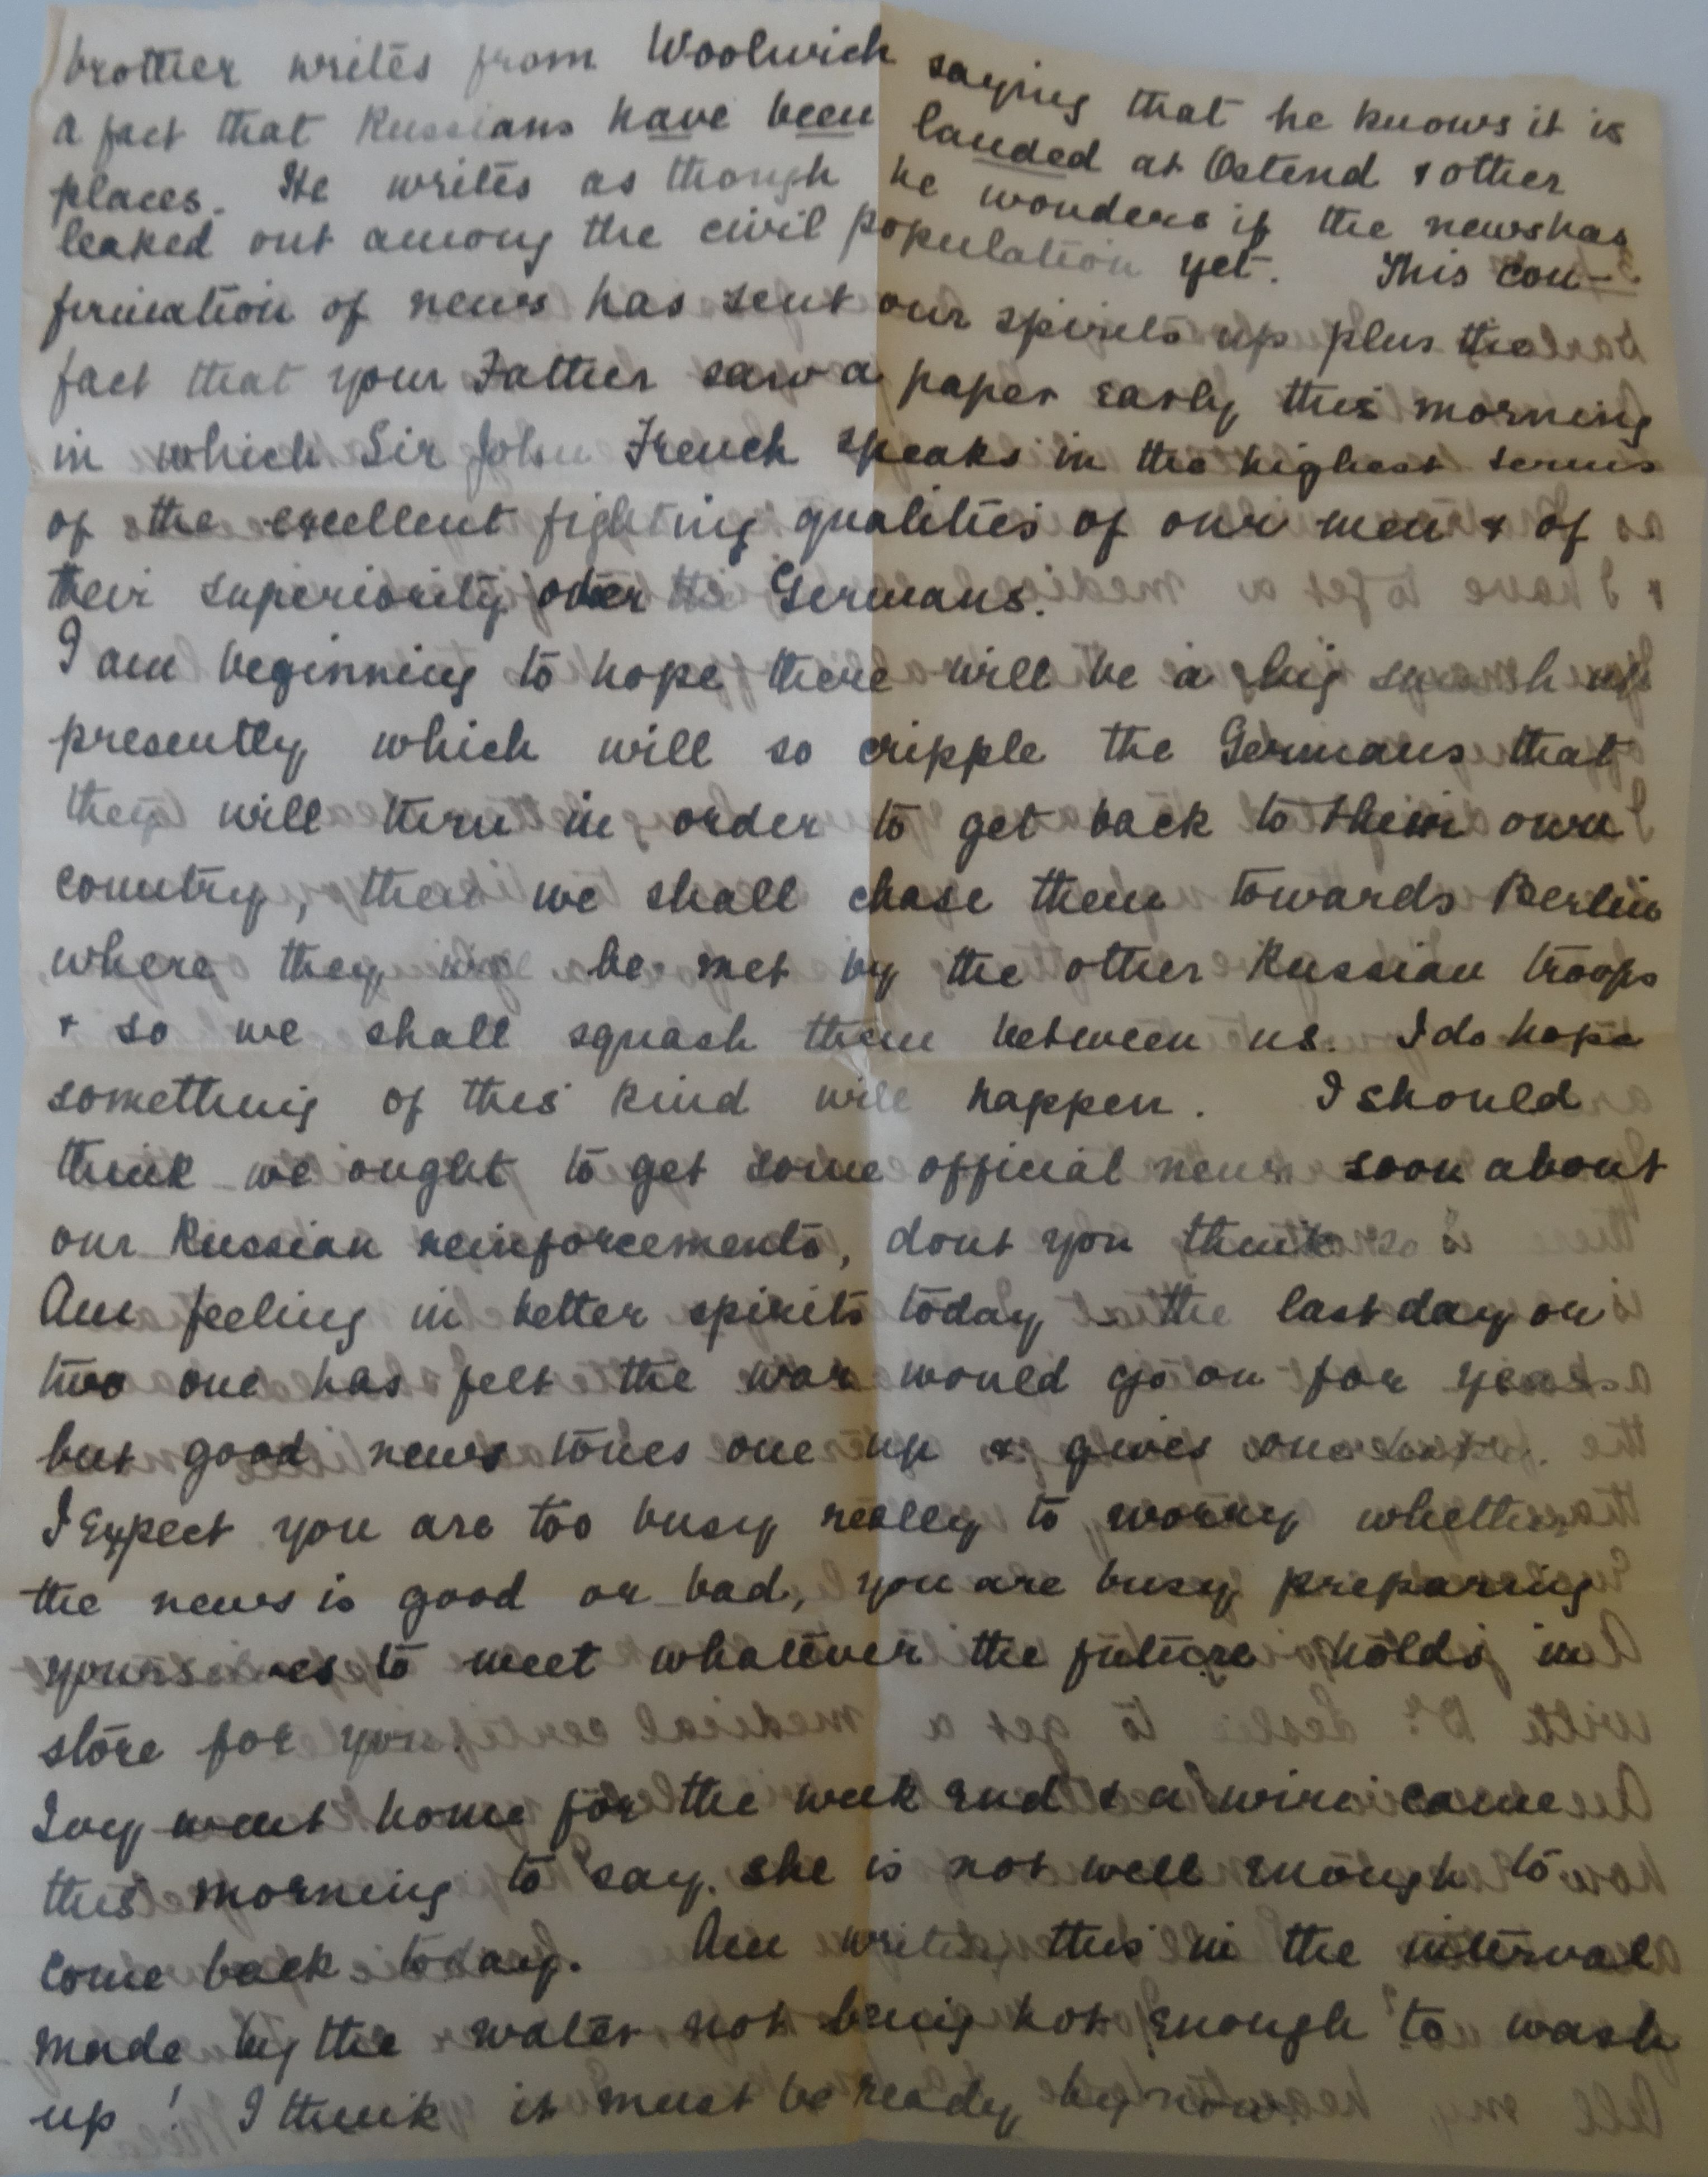 brother writes from Woolwich saying that he knows it is
a fact that Russians have been landed at Ostend & other
places. He writes as though he wonders if the news has
leaked out among the civil population yet. This con-
firmation of news has sent our spirits up plus the
fact that your Father saw a paper early this morning
in which Sir John French speaks in the highest terms
of the excellent fighting qualities of our men & of
their superiority over the Germans.
I am beginning to hope there will be a big smash up
presently which will so cripple the Germans that
they will turn in order to get back to their own
country, then we shall chase them towards Berlin
where they will be met by the other Russian troops
& so we shall squash them between us. I do hope
something of this kind will happen. I should
think we ought to get some official news soon about
our Russian reinforcements, dont you think so?
Am feeling in better spirits today - the last day or
two one has felt the war would go on for years
but good news tones one up & gives one
I expect you are too busy really to worry whether
the news is good or bad, you are busy preparing
yourselves to meet whatever the future holds in
store for you.
Ivy went home for the week end & a wire came
this morning to say she is not well enough to
come back today. Am writing this in the interval
made by the water not being hot enough to wash
up! I think it must be ready by now